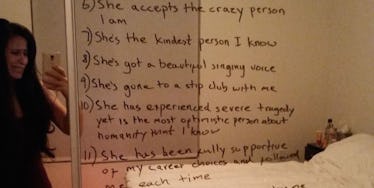 6) She accepts the crazy person
I am
7) She's the kindest person I know
8) She's got a beautiful singing voice
9) She's gone to a strip club with me
10) She has experienced severe tragedy
yet is the most optimistic person about
humanity I know
11) She has been fully supportive
of my career choices and followed
me each time